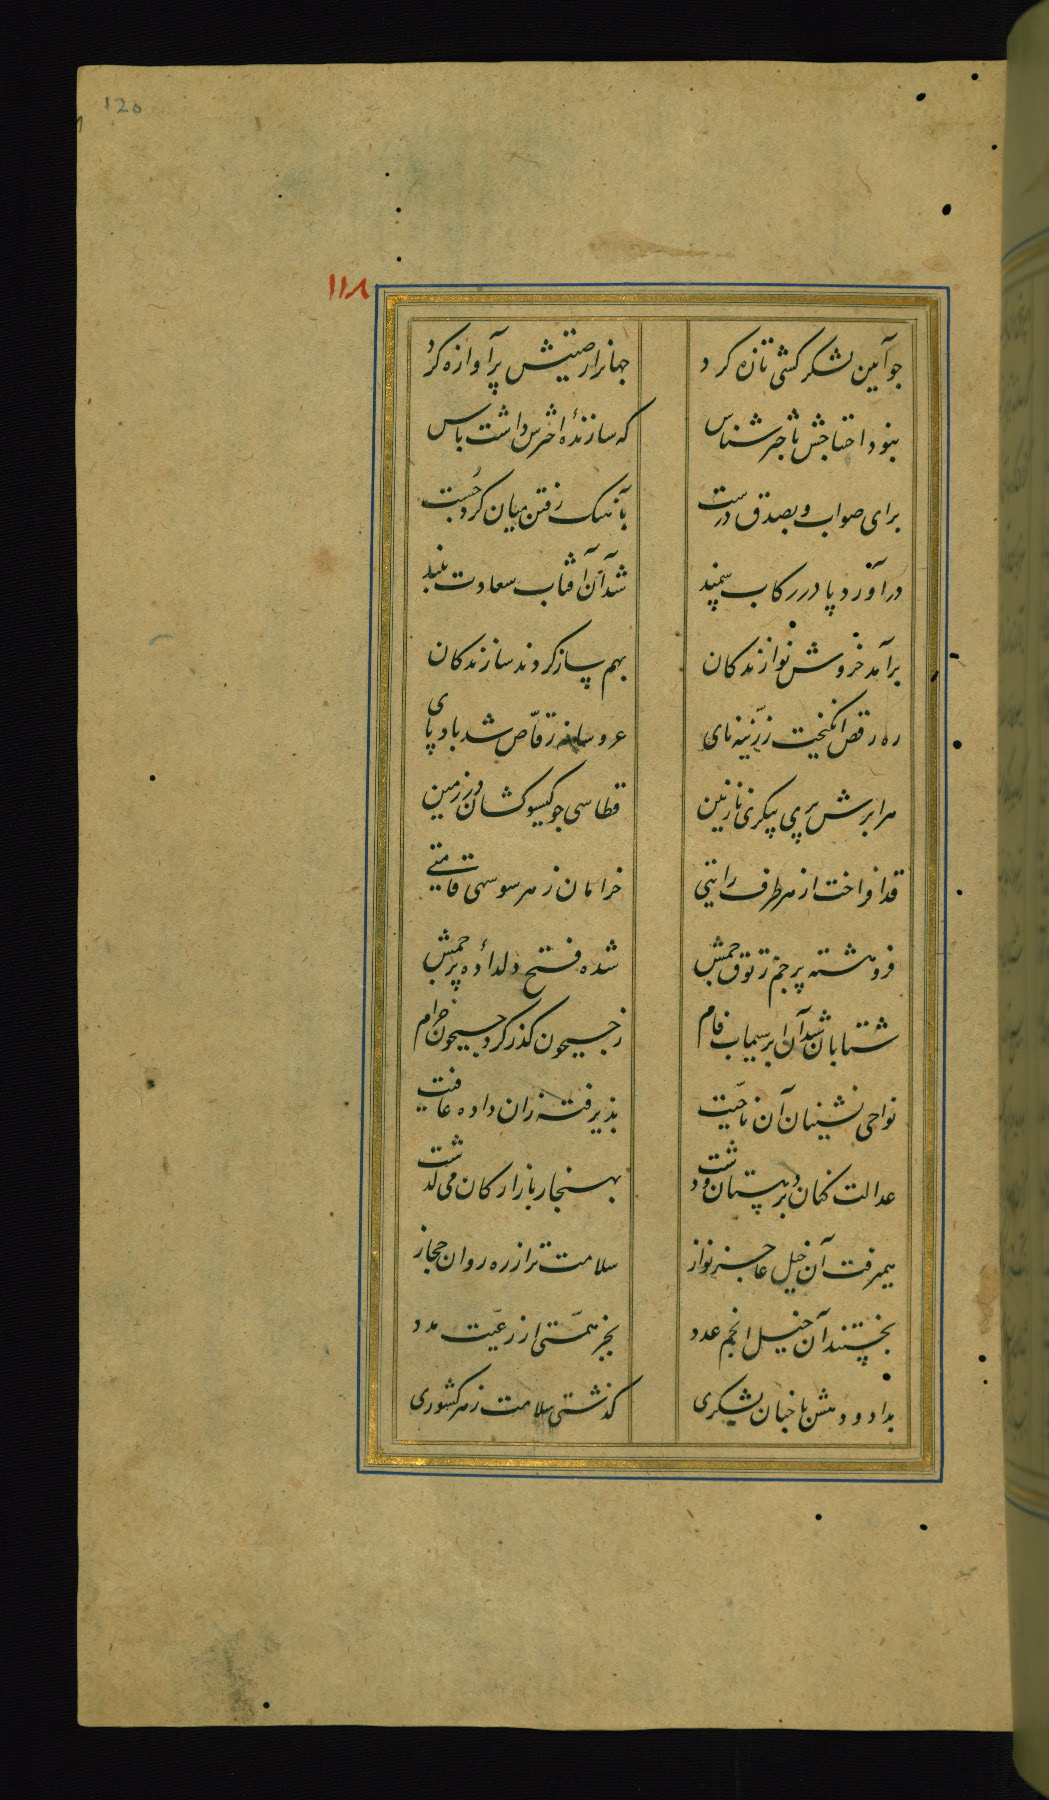 120
۱۱۸
چو آیین لشکر کشی تازه کرد جهانرا ز صیتش پر آوازه کرد
نبود احتیاجش باختر شناس که سازندهٔ اخترش داشت پاس
برای صواب و بصدق درست بآهنک رفتن میان کرد چست
در آورد پا در رکاب سمند شد آن آفتاب سعادت بلند
برآمد خروش نوازندکان بهم ساز کردند سازندکان
ره رقص انکیخت زرّینه نای عروسانه رقّاص شد باد پای
هر ابرش پری پیکری نازنین قطاسی چو کیسو کشان در زمین
قد افراخت از هر طرف رایتی خرامان ز هر سو سهی قامتی
فروهشته پرچم ز توق خمش شده فتح دلدادهٔ پرچمش
شتابان شد آن ابر سیماب فام ز جیحون کذر کرد جیحون خرام
نواحی نشینان آن ناحیّت پذیرفته زان داده عافیت
عدالت کنان بر و بستان و دشت بهنجار بازارکان می کذشت
همیرفت آن خیل عاجز نواز سلامت تر از ره روان حجاز
نجستند آن خیل انجم عدد بجز همّتی از رعیّت مدد
بداد و دهش با چنان لشکری کذشتی سلامت ز هر کشوری